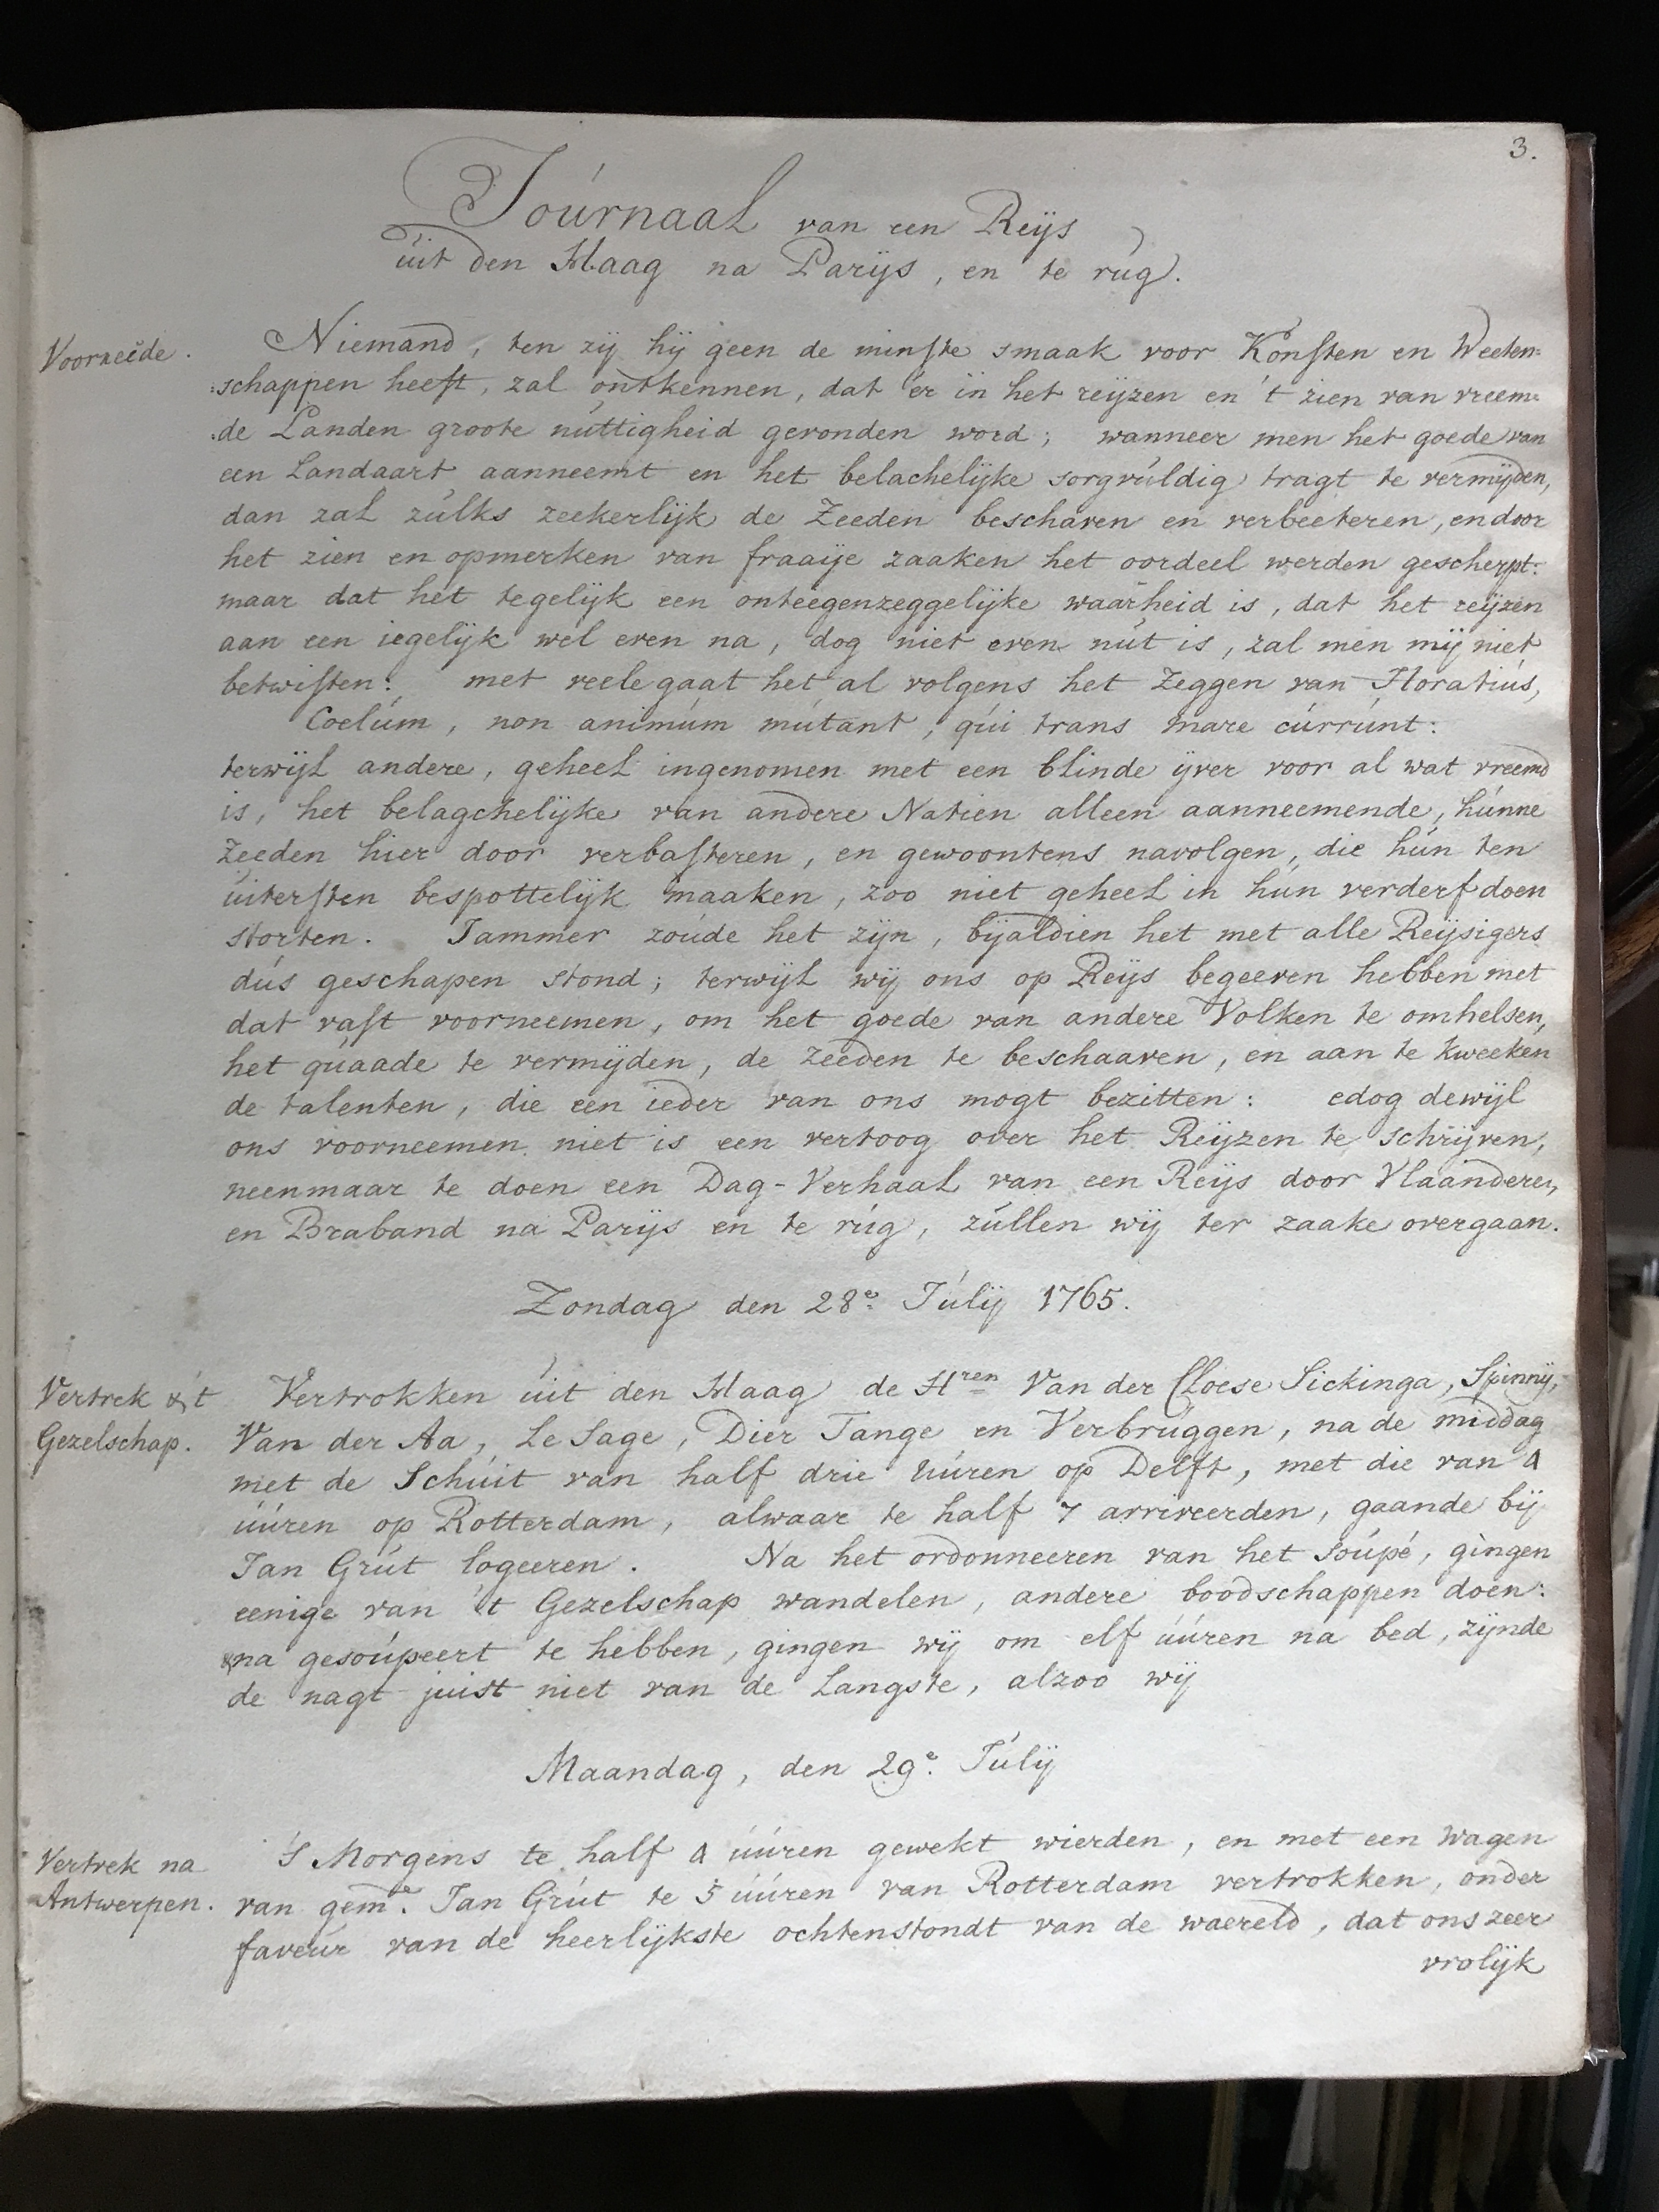 3.
Journaal van een Reijs
uit den Haag na Parijs, en te rug.
Voorreede.
Niemand, ten zij hij geen de minste smaak voor Konsten en Weeten=
=schappen heeft, zal ontkennen, dat 'er in het reijzen en 't zien van vreem=
=de Landen groote nuttigheid gevonden word; wanneer men het goede van
een Landaart aanneemt en het belachelijke sorgvuldig tragt te vermijden,
dan zal zulks zeekerlijk de Zeeden beschaven en verbeeteren, en door
het zien en opmerken van fraaije zaaken het oordeel werden gescherpt:
maar dat het tegelijk een onteegenzeggelijke waarheid is, dat het reijzen
aan een iegelijk wel even na, dog niet even nut is, zal men mij niet
betwisten: met veele gaat het al volgens het Zeggen van Horatius,
Coelum, non animum mutant, qui trans mare currunt:
terwijl andere, geheel ingenomen met een blinde ijver voor al wat vreemd
is, het belagchelijke van andere Natien alleen aanneemende, hunne
Zeeden hier door verbasteren, en gewoontens navolgen, die hun ten
uitersten bespottelijk maaken, zoo niet geheel in hun verderf doen
storten. Jammer zoude het zijn, bijaldien het met alle Reijsigers
dus geschapen stond; terwijl wij ons op Reijs begeeven hebben met
dat vast voorneemen, om het goede van andere Volken te omhelsen,
het quaade te vermijden, de zeeden te beschaaven, en aan te kweeken
de talenten, die een ieder van ons mogt bezitten: edog dewijl
ons voorneemen niet is een vertoog over het Reijzen te schrijven,
neenmaar te doen een Dag-Verhaal van een Reijs door Vlaanderen,
en Braband na Parijs en te rug, zullen wij ter zaake overgaan.
Zondag den 28e. Julij 1765.
Vertrek & 't
Gezelschap.
Vertrokken uit den Haag de Hren Van der Cloese Sickinga, Spinnij,
Van der Aa, Le Sage, Dier Tange en Verbruggen, na de middag
met de Schuit van half drie uuren op Delft, met die van 4
uuren op Rotterdam, alwaar te half 7 arriveerden, gaande bij
Jan Grut logeeren. Na het ordonneeren van het soupé, gingen
eenige van 't Gezelschap wandelen, andere boodschappen doen:
na gesoupeert te hebben, gingen wij om elf uuren na bed, zijnde
de nagt juist niet van de Langste, alzoo wij
Maandag, den 29e. Julij
Vertrek na
Antwerpen.
'S Morgens te half 4 uuren gewekt wierden, en met een Wagen
van geme. Jan Grut te 5 uuren van Rotterdam vertrokken, onder
faveur van de heerlijkste ochtenstondt van de waereld, dat ons zeer
vrolijk